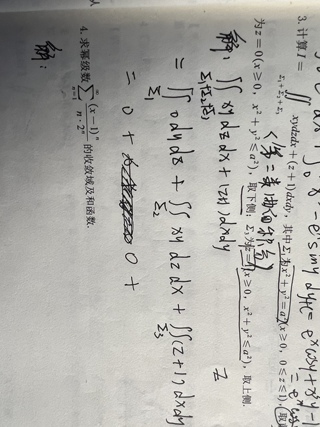 3. 计算 I = ∬_{Σ₁+Σ₂+Σ₃} xydzdx + (z+1)dxdy, 其中 Σ₁ 为 x² + y² = a² (x ≥ 0, 0 ≤ z ≤ 1), 取
为 z = 0 (x ≥ 0, x² + y² ≤ a²), 取下侧; Σ₃ 为 z = 1 (x ≥ 0, x² + y² ≤ a²), 取上侧.
(第二类曲面积分)
解: ∬_{Σ₁+Σ₂+Σ₃} xy dz dx + (z+1) dxdy
= ∬_{Σ₁} 0 dy dz + ∬_{Σ₂} xy dz dx + ∬_{Σ₃} (z+1) dxdy
= 0 + 0 +
4. 求幂级数 ∑_{n=1}^{∞} (x-1)ⁿ / (n·2ⁿ) 的收敛域及和函数.
解: